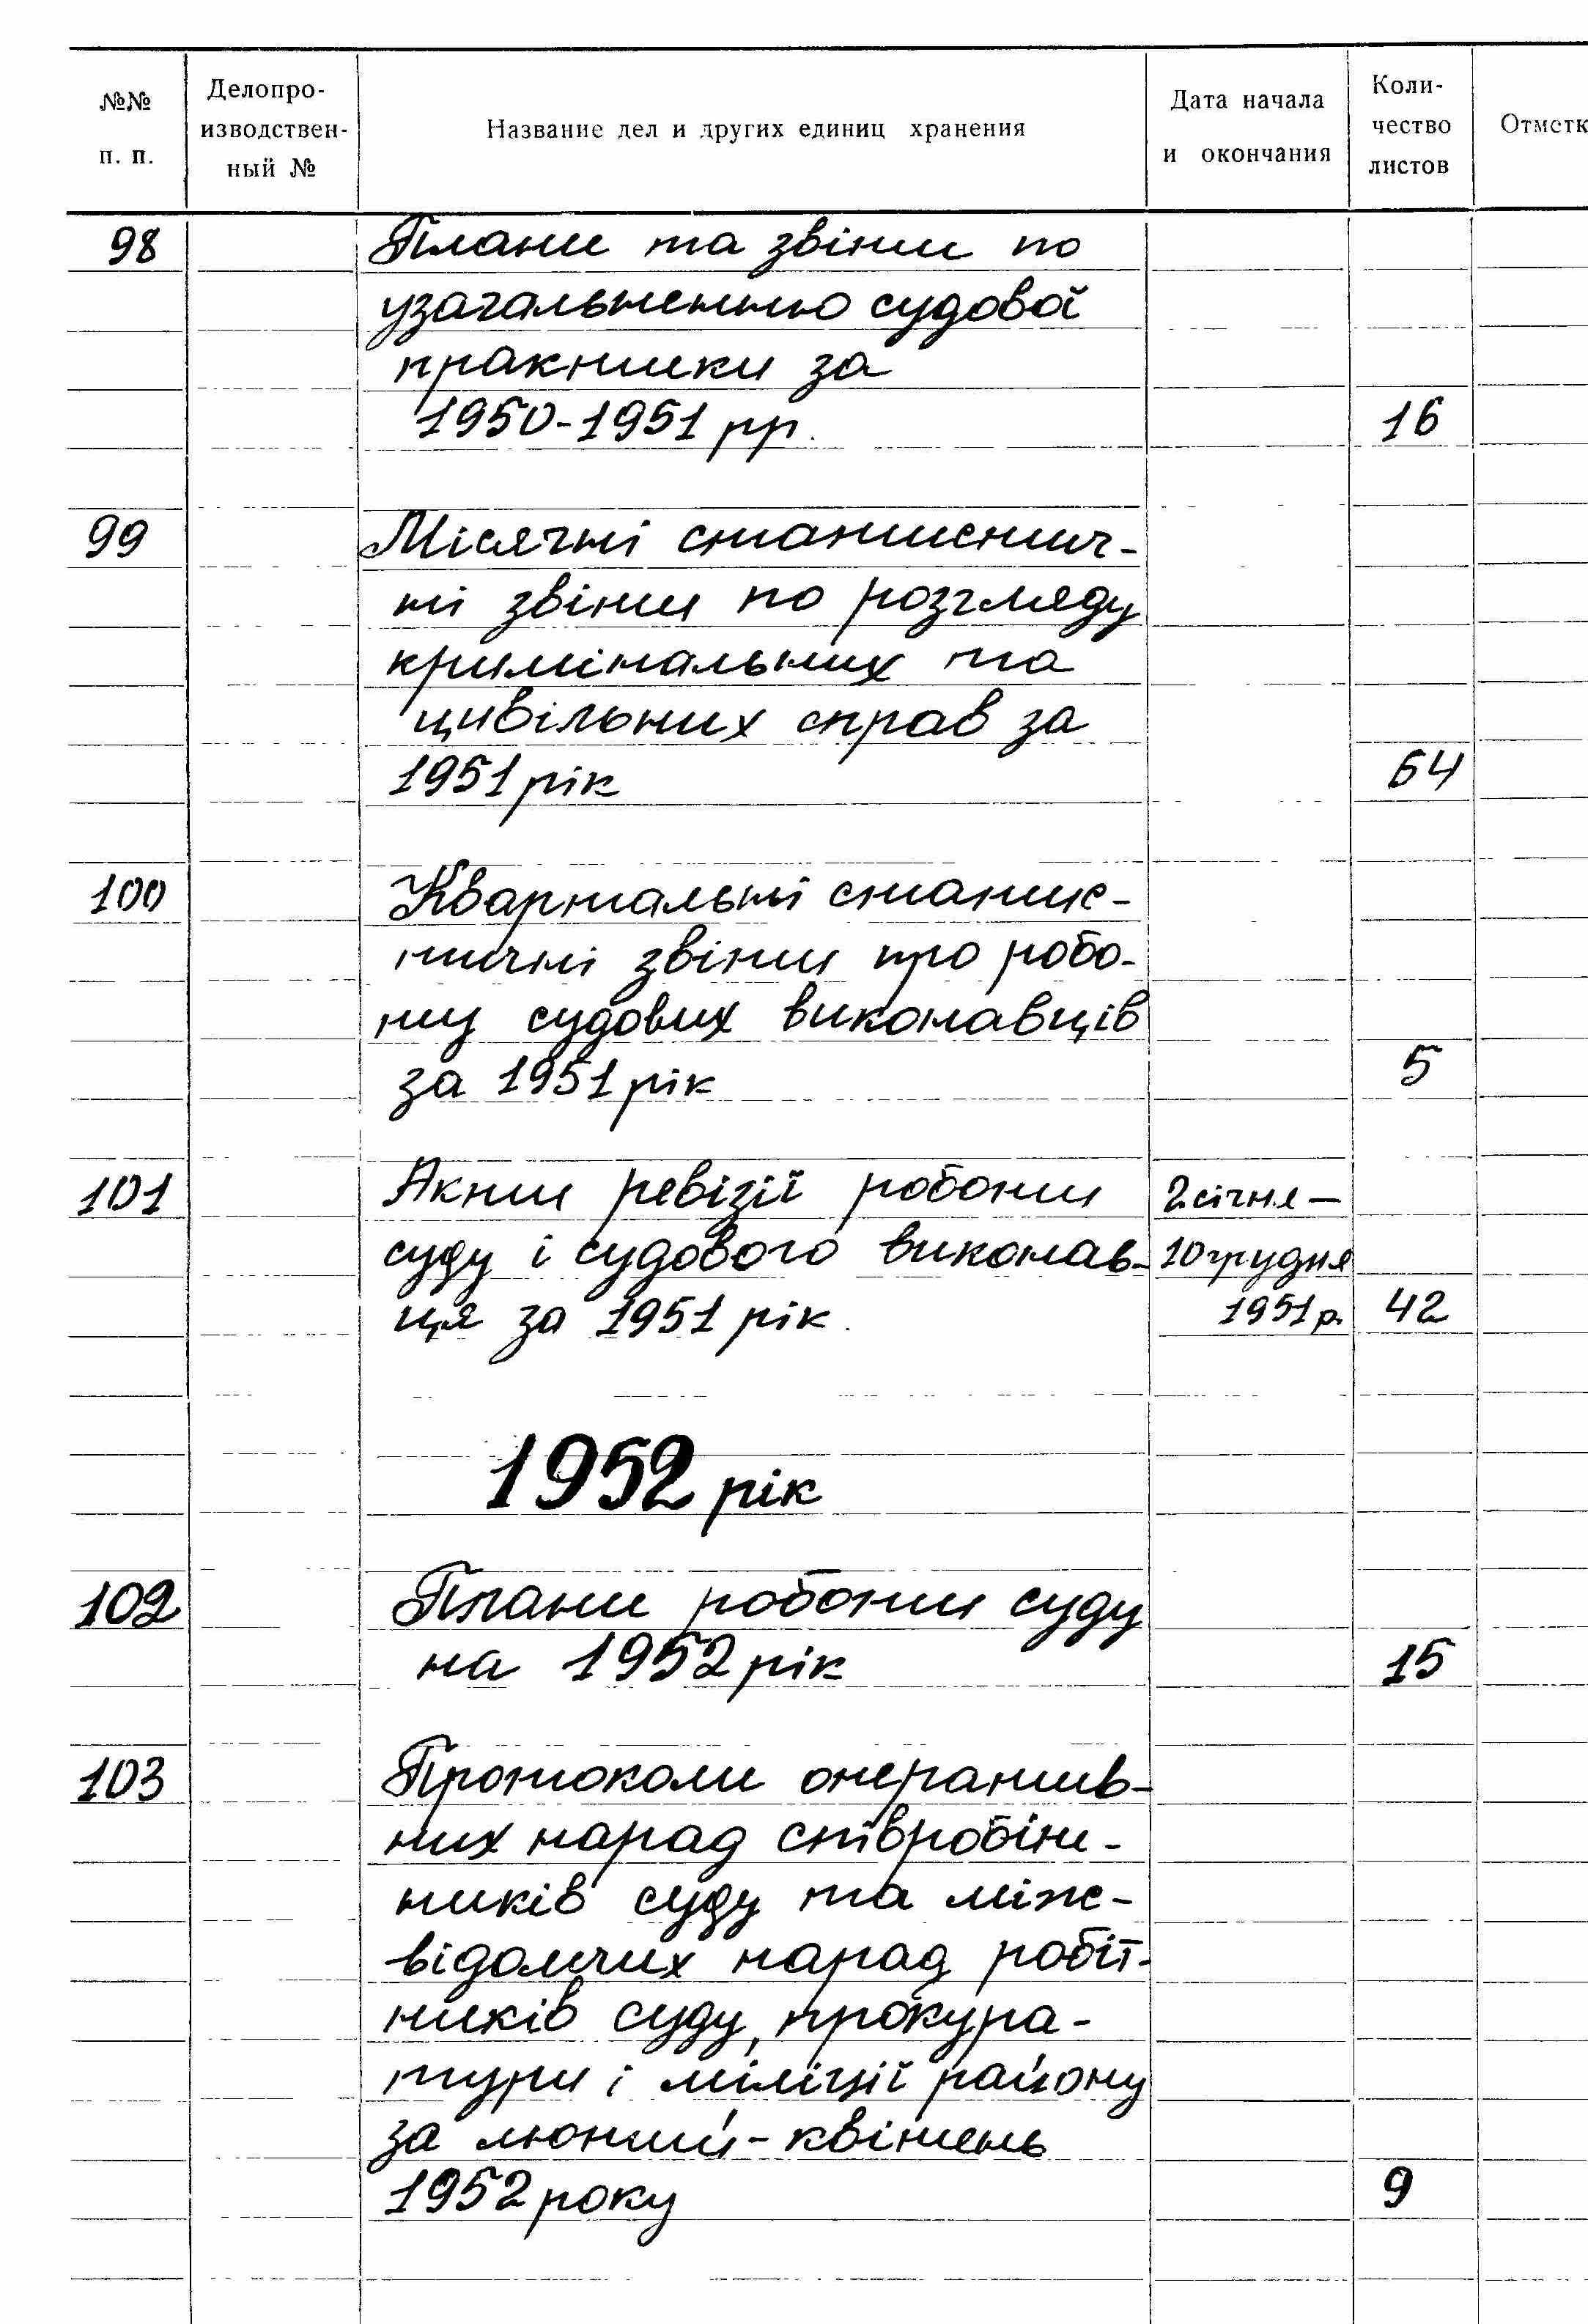 №№ п. п.
Делопро-
изводствен-
ный №
Название дел и других единиц хранения
Дата начала
и окончания
Коли-
чество
листов
Отметк
98 Плани та звіти по
узагальненню судової
практики за
1950-1951 рр. 16
99 Місячні статистич-
ні звіти по розгляду
кримінальних та
цивільних справ за
1951 рік 64
100 Квартальні статис-
тичні звіти про робо-
ту судових виконавців
за 1951 рік 5
101 Акти ревізії роботи 2 січня –
суду і судового виконав- 10 грудня
ця за 1951 рік. 1951 р. 42
1952 рік
102 Плани роботи суду
на 1952 рік 15
103 Протоколи оператив-
них нарад співробіт-
ників суду та між-
відомчих нарад робіт-
ників суду, прокура-
тури і міліції району
за лютий - квітень
1952 року 9